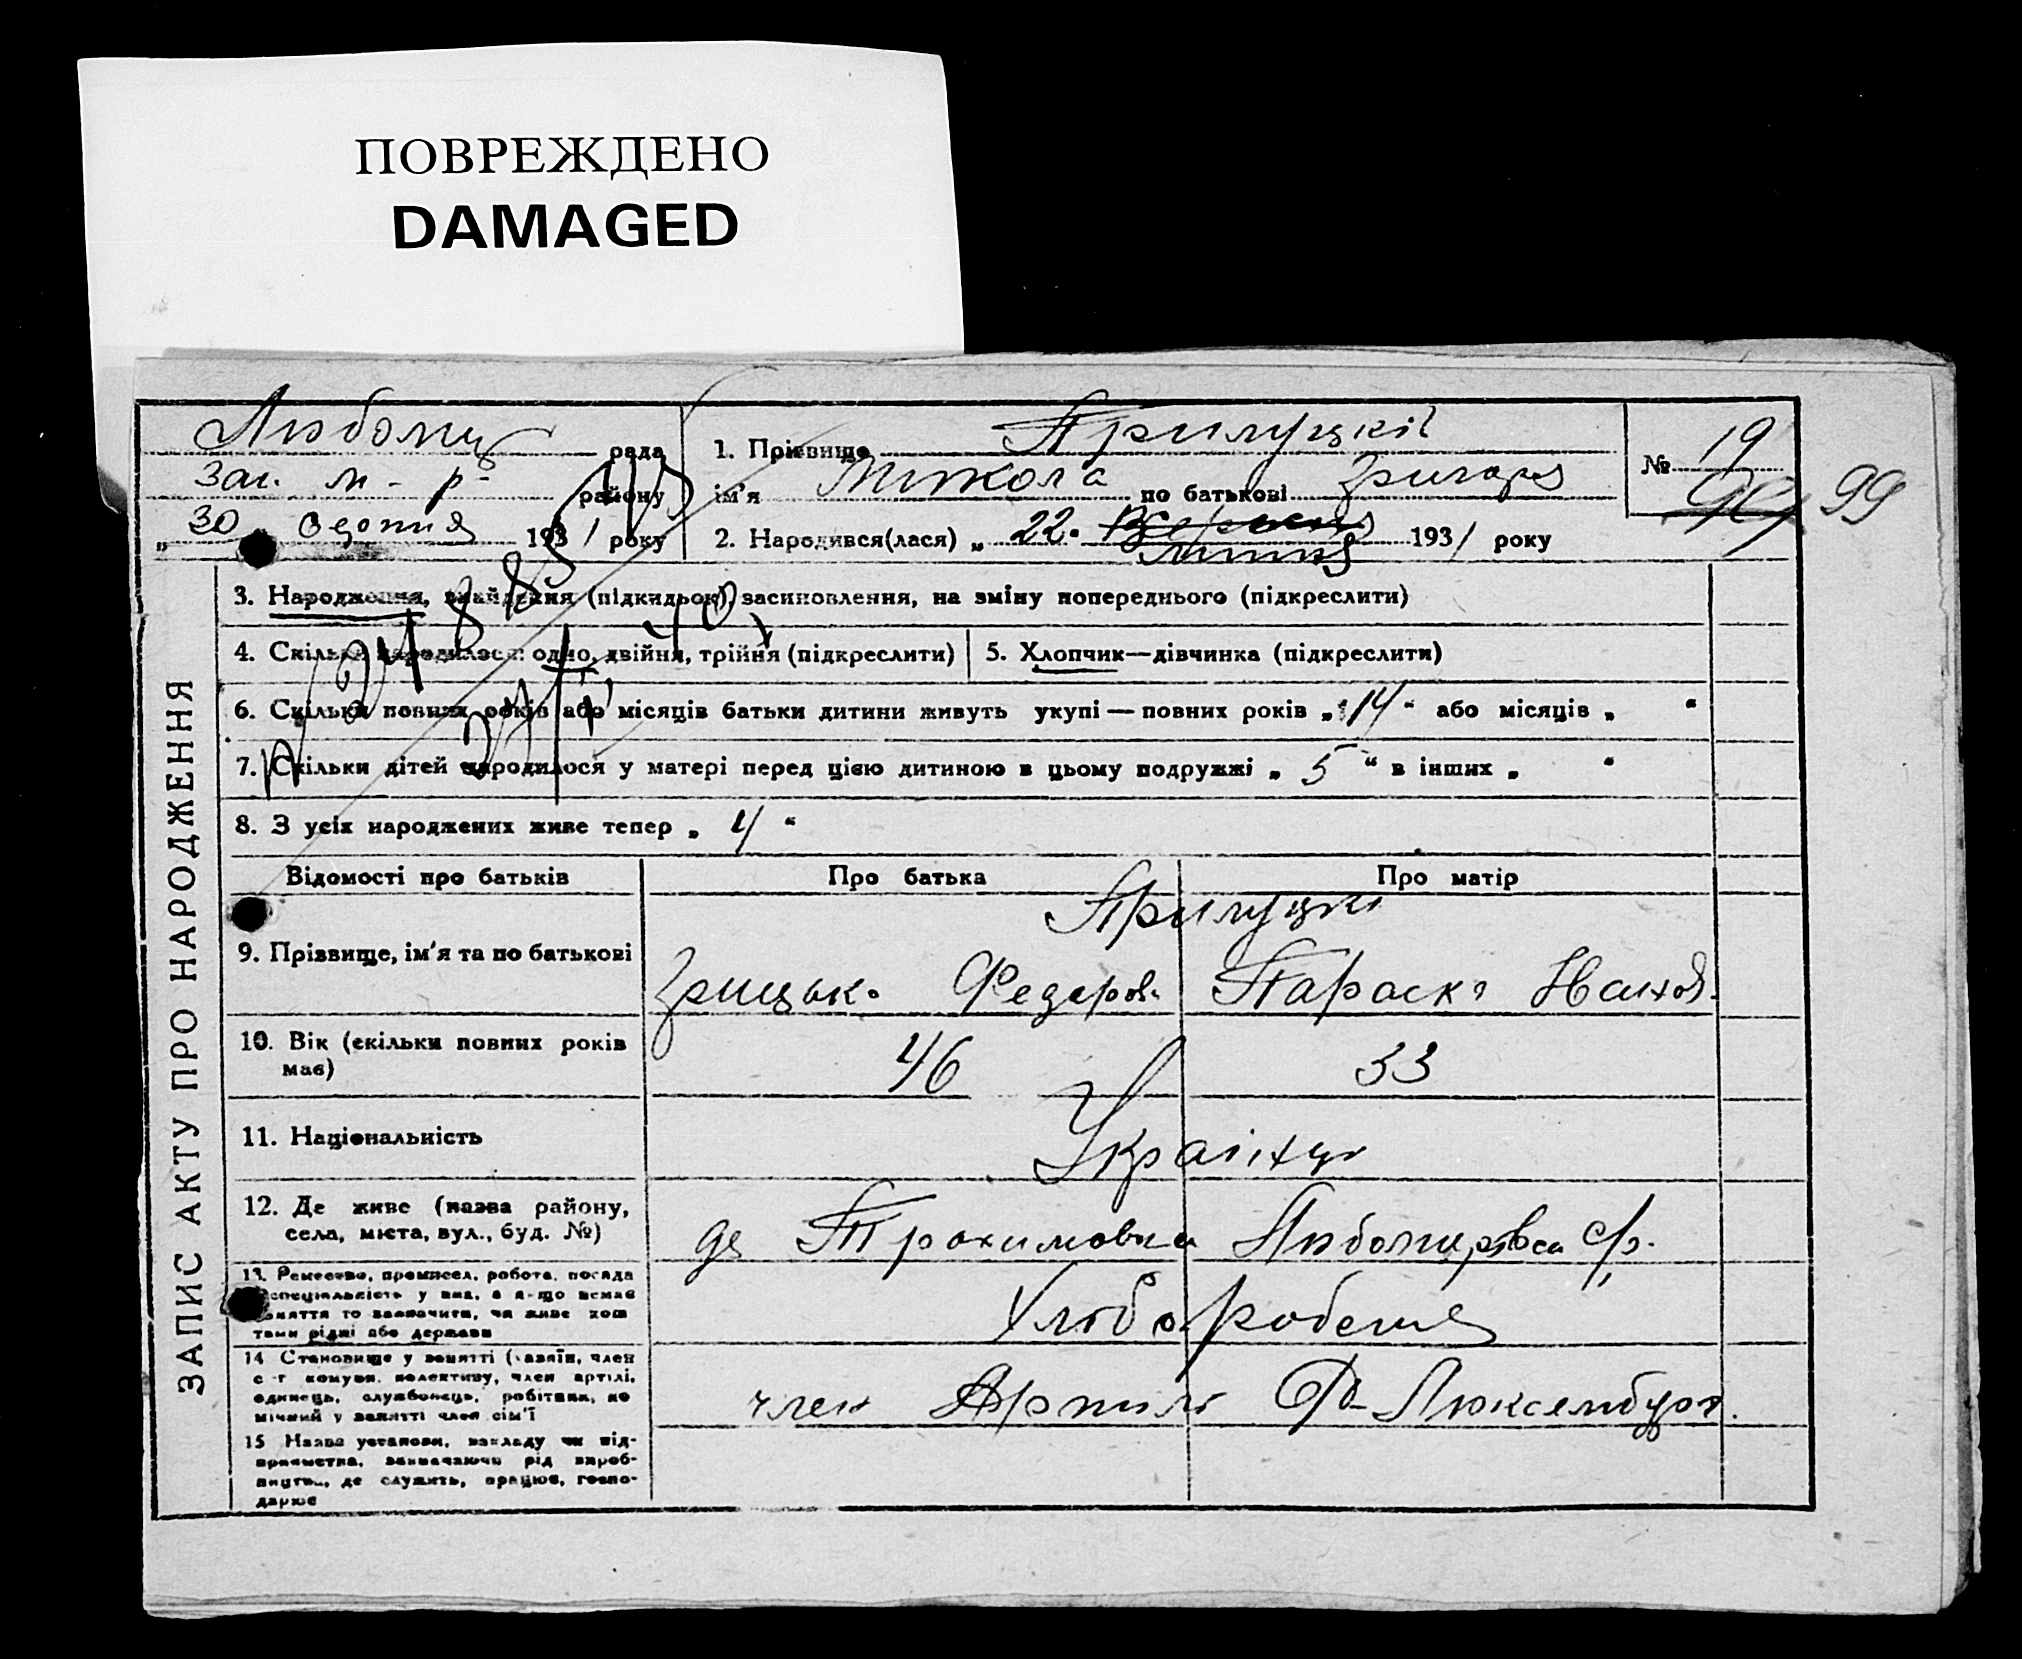 ПОВРЕЖДЕНО
DAMAGED
рада
Заг. м-р- району
„30" Серпня 1931 року
1. Прізвище Прилуцкій
ім'я Микола по батькові Григоров
№ 19
99
2. Народився(лася) „22" Серпня Липня 1931 року
ЗАПИС АКТУ ПРО НАРОДЖЕННЯ
3. Народження, знайдення (підкидьок), засиновлення, на зміну попереднього (підкреслити)
4. Скільки народилося: одно, двійня, трійня (підкреслити)
5. Хлопчик—дівчинка (підкреслити)
6. Скільки повних років або місяців батьки дитини живуть укупі — повних років „14" або місяців „ "
7. Скільки дітей народилося у матері перед цією дитиною в цьому подружжі „5" в інших „ "
8. З усіх народжених живе тепер „4"
Відомості про батьків
Про батька
Про матір
9. Прізвище, ім'я та по батькові
Прилуцкі
Грицько Федоров
Параска
10. Вік (скільки повних років має)
46
33
11. Національність
Українці
12. Де живе (назва району,
села, міста, вул., буд. №)
Любомирівса с/р.
13. Ремество, промисел, робота, посада
спеціяльність у яка, а якщо немає
заняття то зазначити, чи живе кош
тами рідні або держави
Хлібороби
14 Становище у занятті (хазяїн, член
с-г комуни, колективу, член артілі,
одинець, службовець, робітник, по
мічний у занятті член сім'ї
член Артили Р- Люксембург.
15 Назва установи, закладу чи під-
приємства, зазначаючи рід вироб-
ництва, де служить, працює, госпо-
дарює